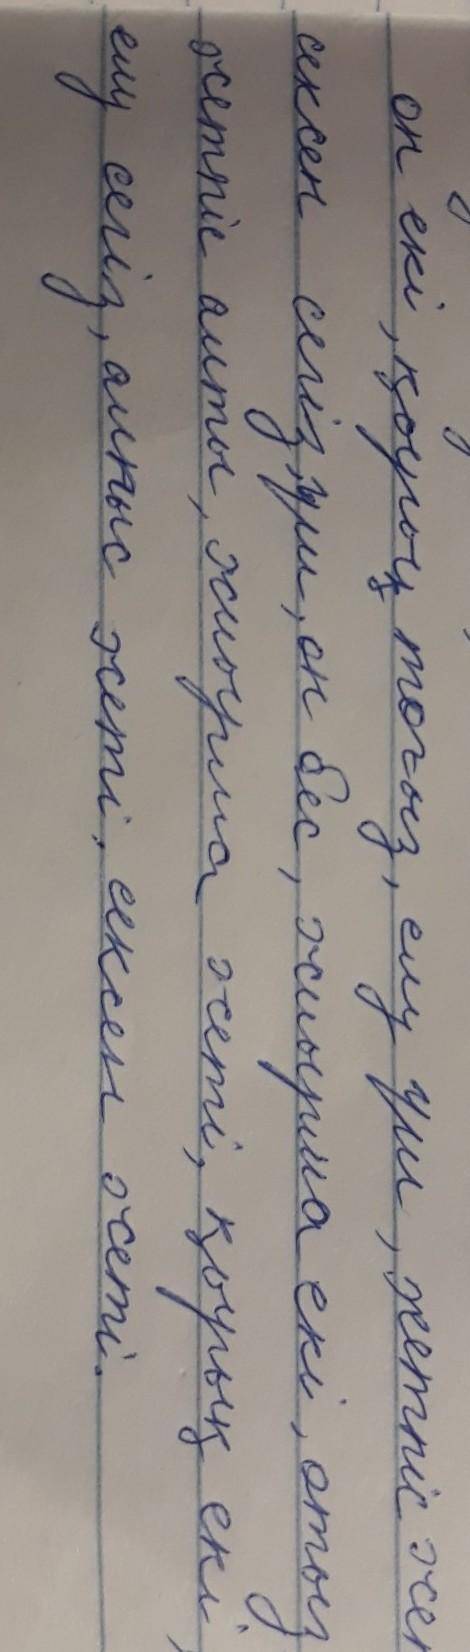 он екі, қырық тоғыз, елу үш, жетпіс
сексен сегіз, үш, он бес, жиырма екі, отыз
жетпіс алты, жиырма жеті, қырық екі,
елу сегіз, алпыс жеті, сексен жеті.